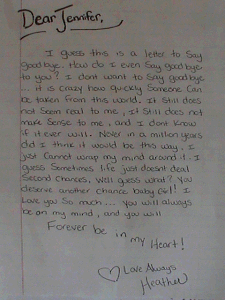 Dear Jennifer,
I guess this is a letter to Say
goodbye. How do I even Say goodbye
to you? I dont want to Say goodbye
... it is crazy how quickly Someone Can
be taken from this world. It Still does
not Seem real to me, it Still does not
make Sense to me, and I dont Know
if it ever will. Never in a million years
did I think it would be this way, I
just Cannot wrap my mind around it. I
guess Sometimes life just doesnt deal
Second Chances, Well guess what? You
deserve another chance baby Girl! I
Love you So much.... You will always
be on my mind, and you will
Forever be in
my Heart!
Love Always
Heather